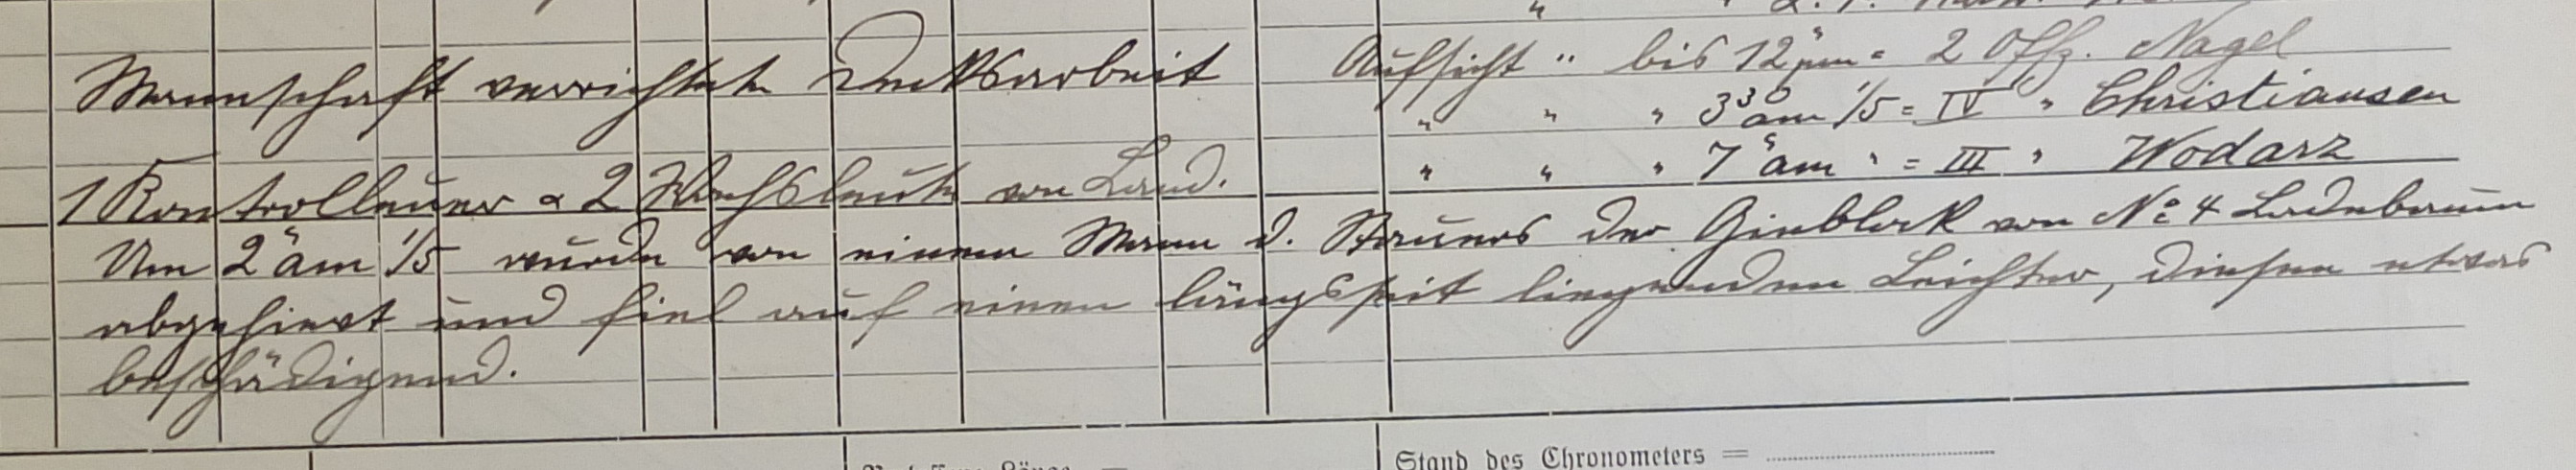 Mannschaft verrichtete Decksarbeit
Aufsicht " bis 12 pm = 2 Offz. Nagel
" " " 3³⁰ am 1/5 = IV " Christiansen
" " " 7 am " = III " Wodarz
1 Kontrolleuer & 2 Wachsleute von Land.
Um 2 am 1/5 wurde von einem Mann d. Stauers der Gieblock von No 4 Ladebaum
abgefiert und fiel auf einen längsseit liegenden Leichter, diesen etwas
beschädigend.
Stand des Chronometers =